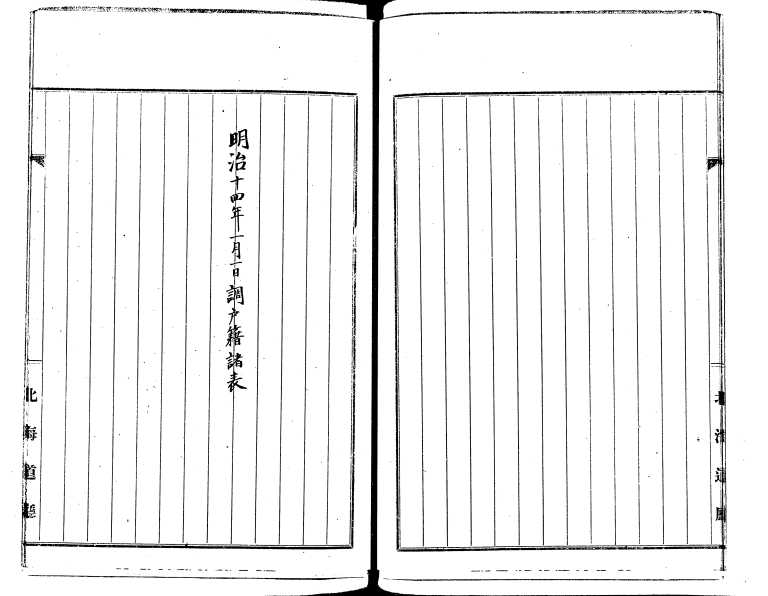 明治十四年一月一日調戸籍諸表
北海道廳
北海道廳